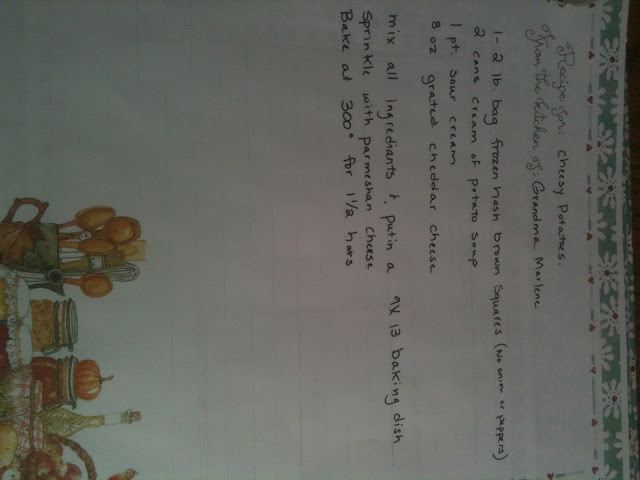 Recipe for: Cheesy Potatoes.
From the kitchen of: Grandma Marlene
1- 2 lb. bag frozen hash brown squares (No onion or peppers)
2 cans cream of potato soup
1 pt. sour cream
8 oz grated cheddar cheese
mix all Ingrediants & put in a 9X13 baking dish
Sprinkle with parmeshan cheese
Bake at 300° for 1 1/2 hors